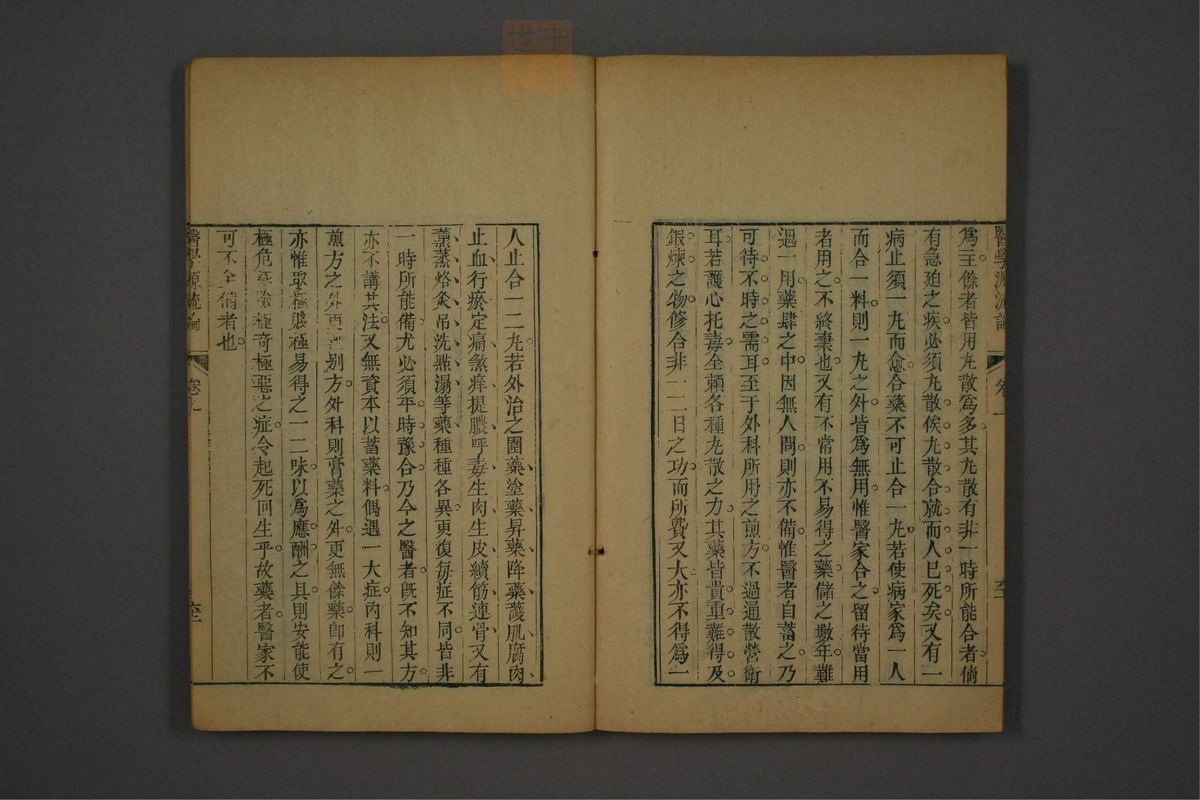 醫學源流論
卷上
六十一
爲主餘者皆用丸散爲多其丸散有非一時所能合者倘
有急廹之疾必須丸散俟丸散合就而人已死矣又有一
病止須一丸而愈合藥不可止合一丸若使病家爲一人
而合一料則一丸之外皆爲無用惟醫家合之留待當用
者用之不終棄也又有不常用不易得之藥儲之數年難
遇一用藥肆之中因無人問則亦不備惟醫者自蓄之乃
可待不時之需耳至于外科所用之煎方不過通散營衛
耳若護心托毒全賴各種丸散之力其藥皆貴重難得及
鍜煉之物修合非一二日之功而所費又大亦不得爲一
人止合一二丸若外治之圍藥塗藥昇藥降藥護肌腐肉
止血行瘀定痛煞痒提膿呼毒生肉生皮續筋連骨又有
薰蒸烙灸吊洗㸃溻等藥種種各異更復每症不同皆非
一時所能備尤必須平時豫合乃今之醫者旣不知其方
亦不講其法又無資本以蓄藥料偶遇一大症內科則一
煎方之外更別方外科則膏藥之外更無餘藥卽有之
亦惟取極賤極易得之一二味以爲應酬之具則安能使
極危極險極奇極惡之症令起死回生乎故藥者醫家不
可不全備者也
醫學源流論
卷上